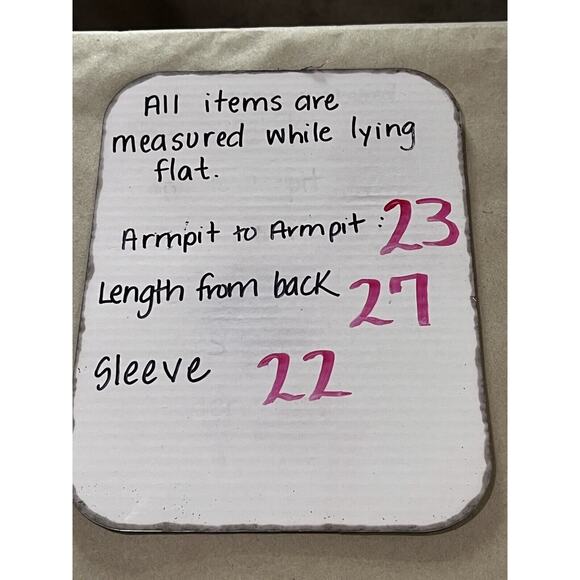 All items are
measured while lying
flat.
Armpit to Armpit: 23
Length from back 27
Sleeve 22